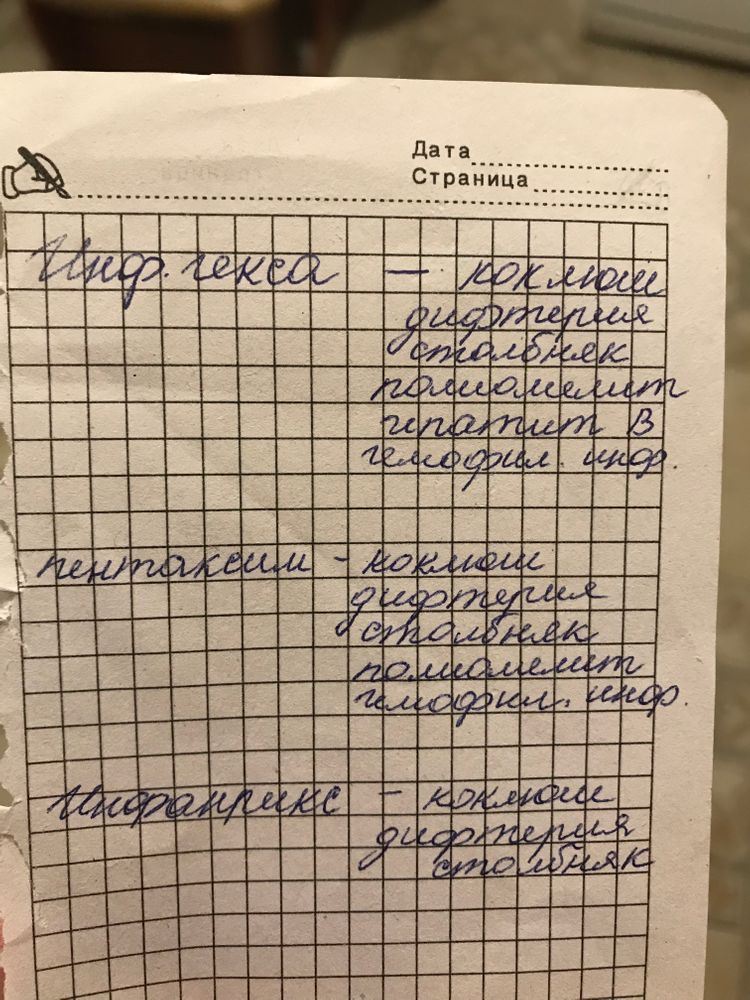 Дата
Страница
Инф. гекса — коклюш
дифтерия
столбняк
полиомелит
гепатит В
гемофил. инф.
пентаксим - коклюш
дифтерия
столбняк
полиомелит
гемофил. инф.
Инфанрикс - коклюш
дифтерия
столбняк